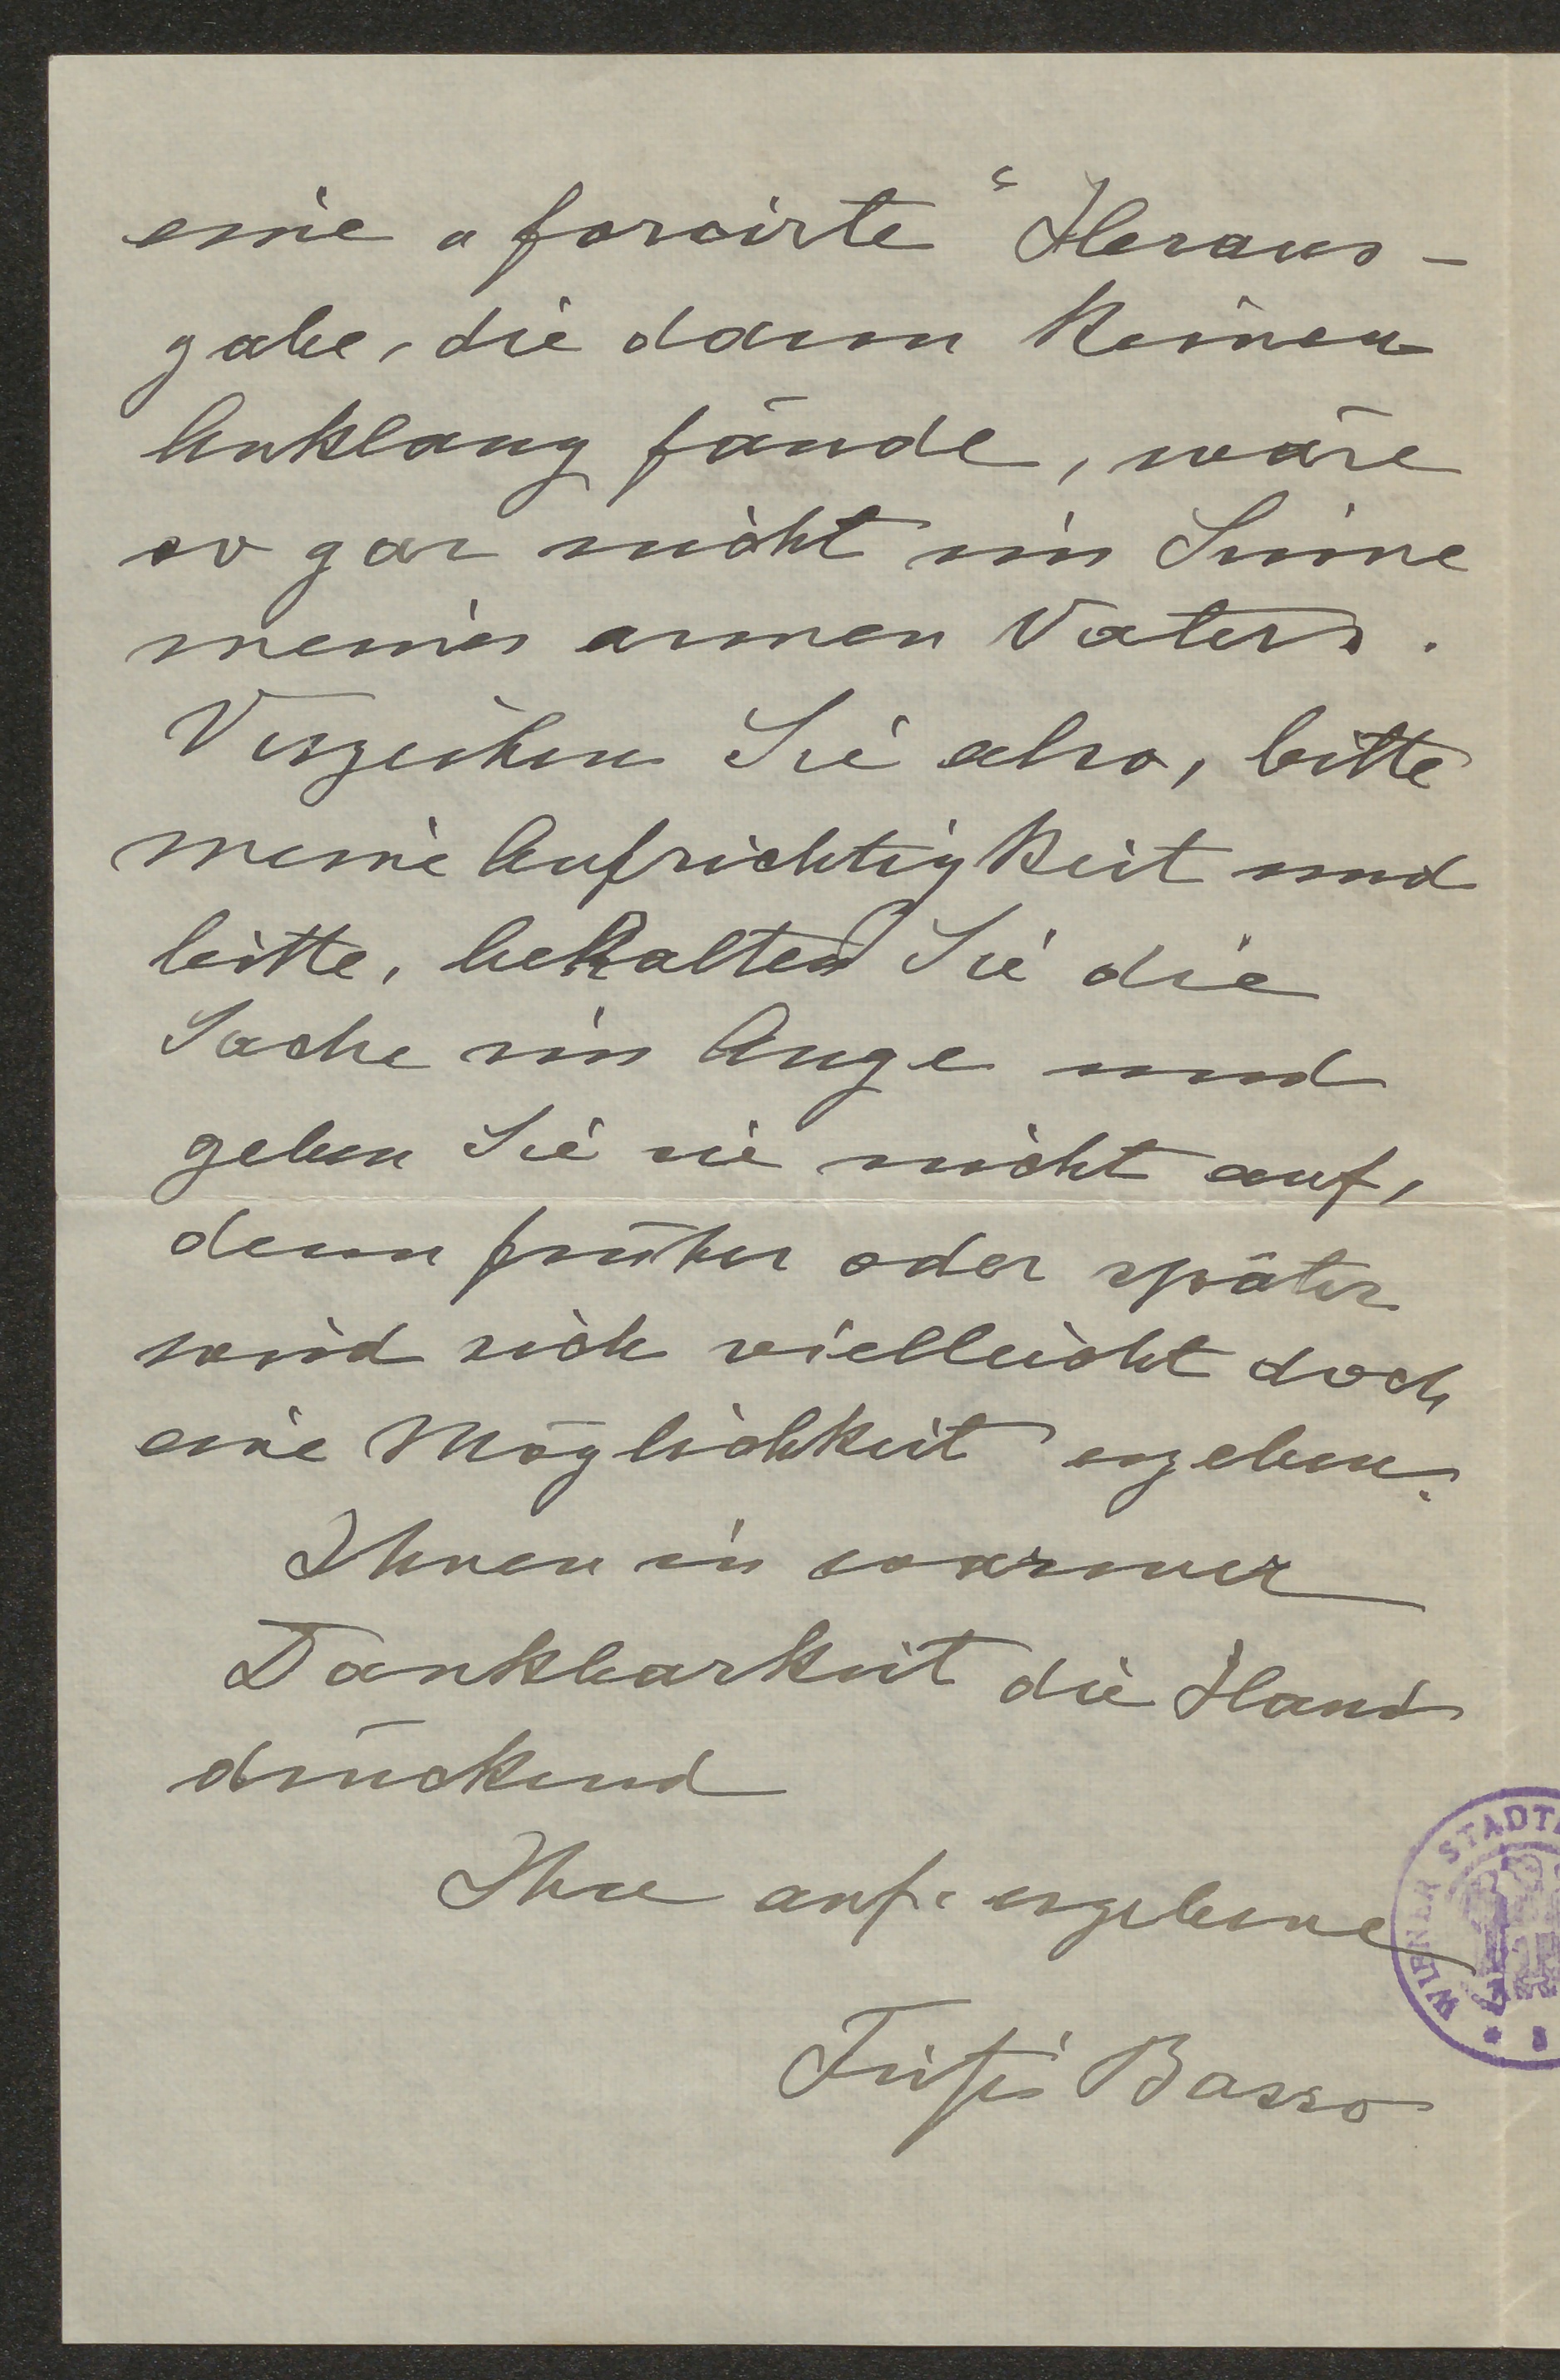 eine „forcirte“ Heraus-
gabe, die dann keinen
Anklang fände, wäre
so gar nicht im Sinne
meines armen Vaters.
Verzeihen Sie also, bitte
meine Aufrichtigkeit und
bitte, behalten Sie die
Sache im Auge und
geben Sie sie nicht auf,
denn früher oder später
wird sich vielleicht doch
eine Möglichkeit ergeben.
Ihnen in warmer
Dankbarkeit die Hand
drückend
Ihre aufr. ergebene
Basso
WIENER STADT